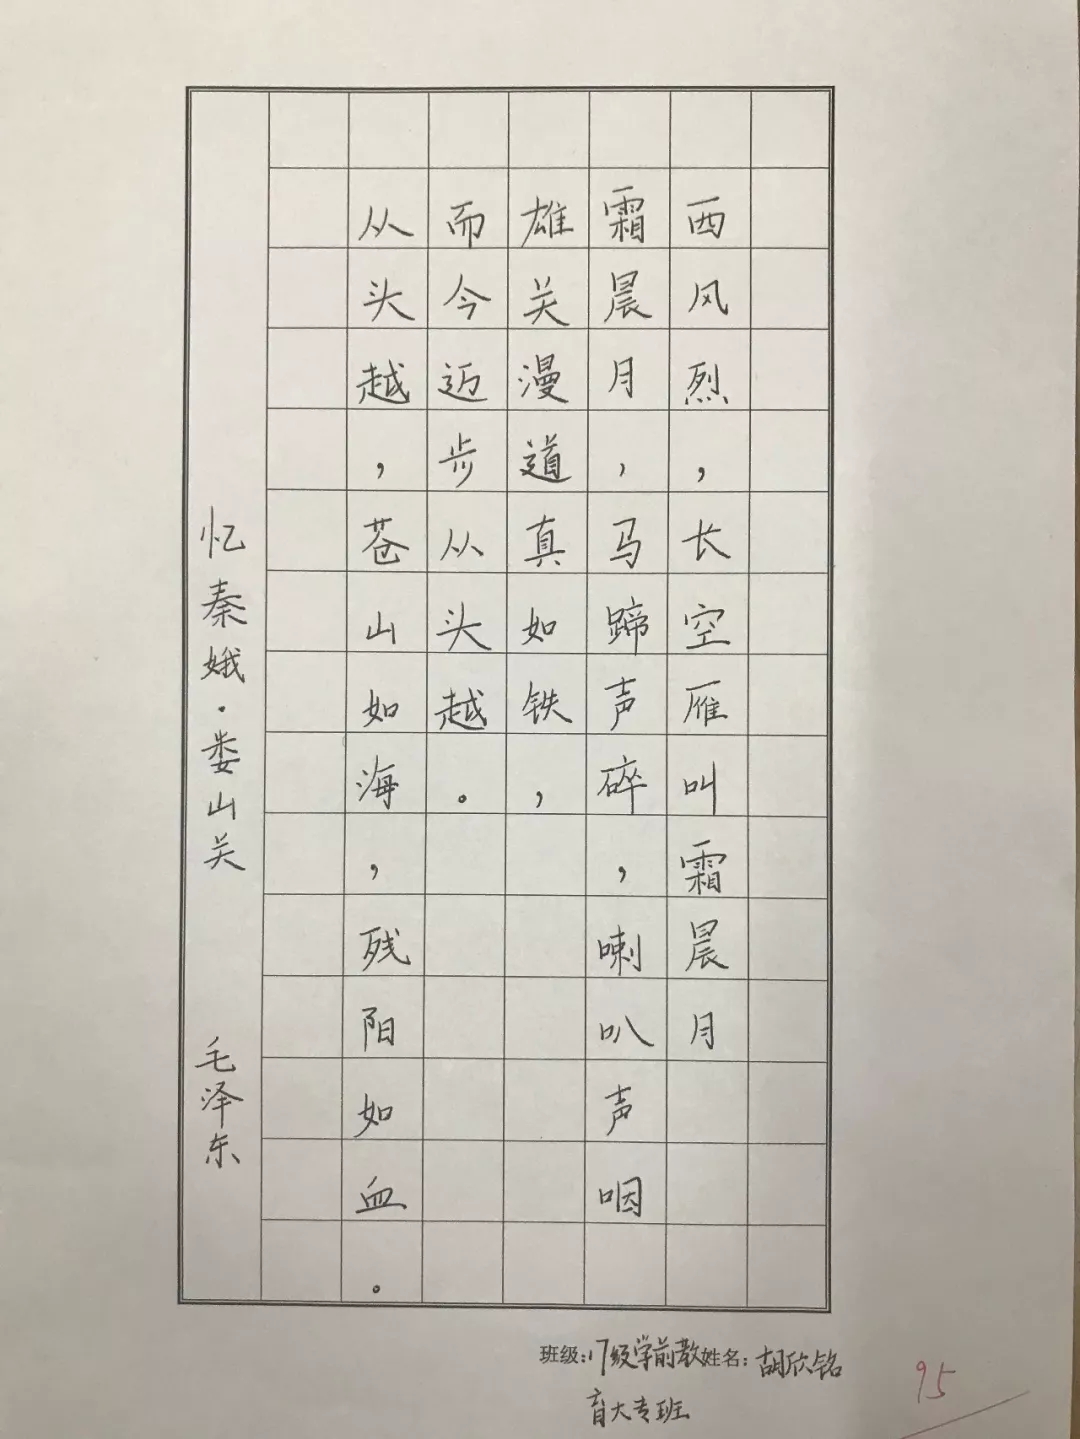 西风烈，长空雁叫霜晨月
霜晨月，马蹄声碎，喇叭声咽
雄关漫道真如铁，
而今迈步从头越。
从头越，苍山如海，残阳如血。
忆秦娥·娄山关 毛泽东
班级：17级学前教姓名：胡欣铭
育大专班
95